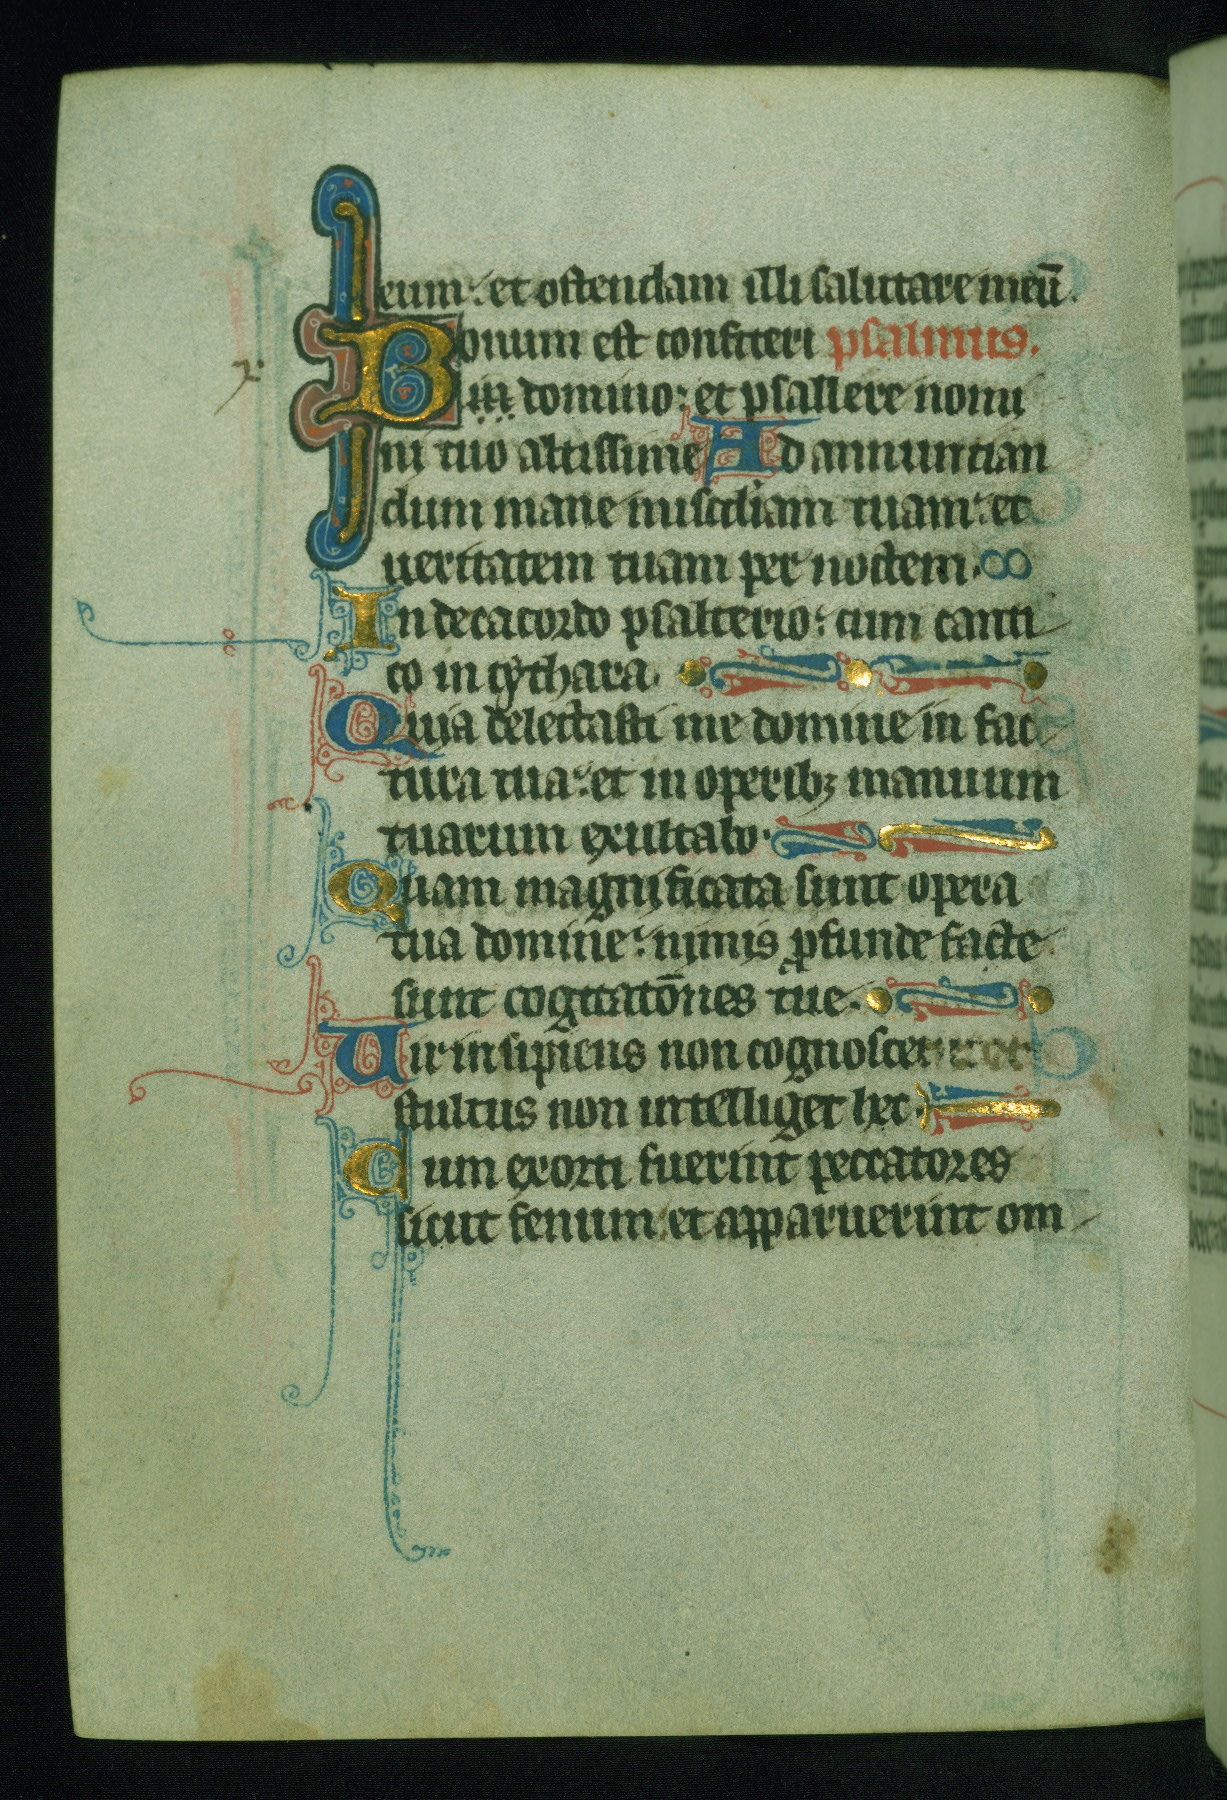 eum: et ostendam illi salutare meū.
Bonum est confiteri psalmus.
domino: et psallere nomi
ni tuo altissime Ad annuntian
dum mane miscdiam tuam: et
ueritatem tuam per noctem.
In decacordo psalterio: cum canti
co in cythara.
Quia delectasti me domine in fac
tura tua: et in operibꝫ manuum
tuarum exultabo.
Quam magnificata sunt opera
tua domine: nimis ꝓfunde facte
sunt cogitatōnes tue.
Uir insipiens non cognoscet: et
stultus non intelliget hec.
Cum exorti fuerint peccatores
sicut fenum: et apparuerint om